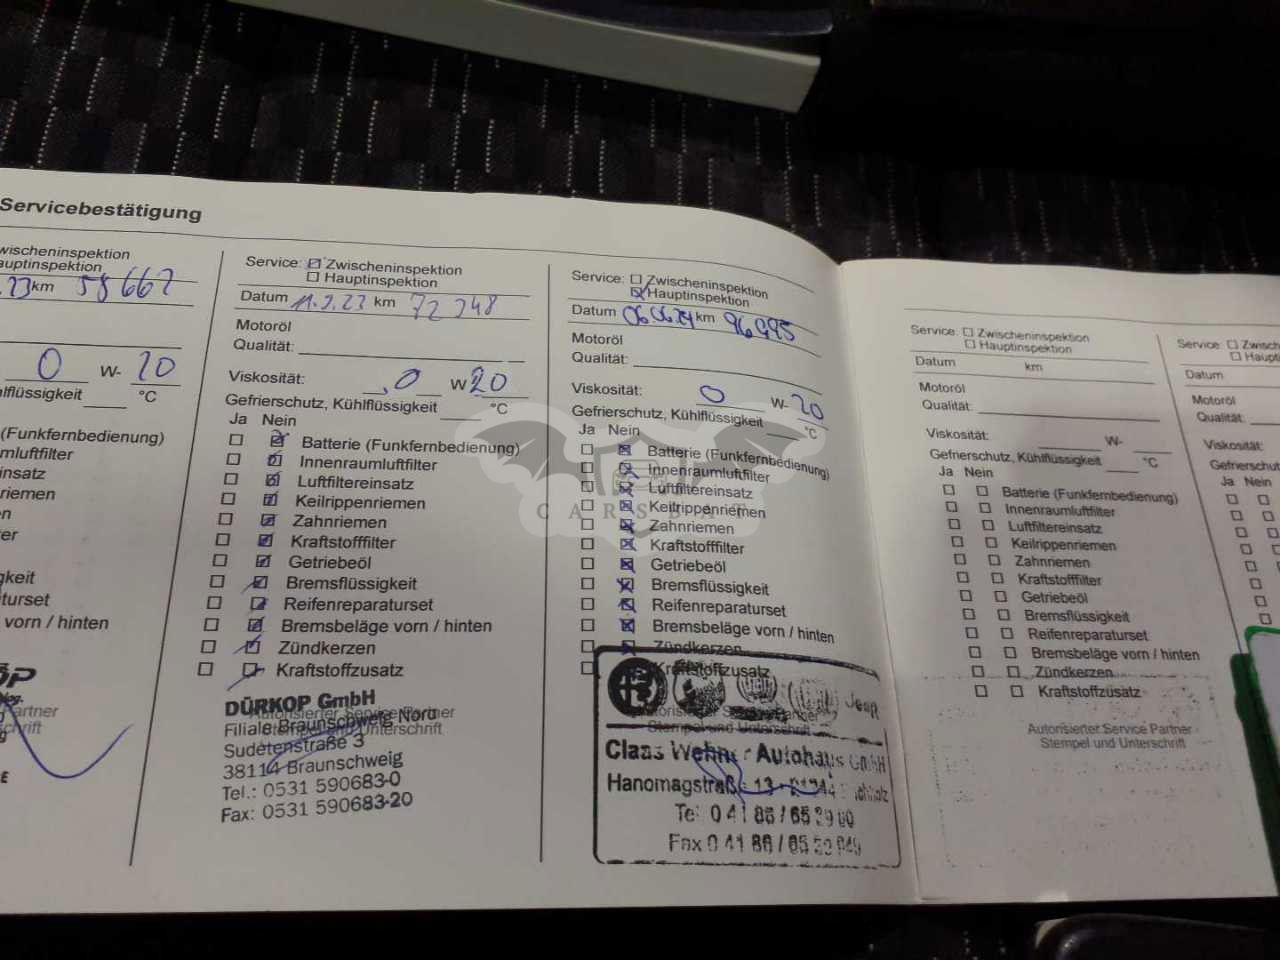 Servicebestätigung
wischeninspektion
auptinspektion
.23 km 58 662
0 W- 20
hlflüssigkeit °C
(Funkfernbedienung)
tumluftfilter
insatz
riemen
en
ter
gkeit
aturset
vorn / hinten
Partner
chrift
Service: Zwischeninspektion
Hauptinspektion
Datum 11.9.23 km 72 948
Motoröl
Qualität:
Viskosität: 0 W 20
Gefrierschutz, Kühlflüssigkeit °C
Ja Nein
Batterie (Funkfernbedienung)
Innenraumluftfilter
Luftfiltereinsatz
Keilrippenriemen
Zahnriemen
Kraftstofffilter
Getriebeöl
Bremsflüssigkeit
Reifenreparaturset
Bremsbeläge vorn / hinten
Zündkerzen
Kraftstoffzusatz
Autorisierter Service Partner
Stempel und Unterschrift
DÜRKOP GmbH
Filiale Braunschweig Nord
Sudetenstraße 3
38114 Braunschweig
Tel.: 0531 590683-0
Fax: 0531 590683-20
Service: Zwischeninspektion
Hauptinspektion
Datum 06.06.24 km 96995
Motoröl
Qualität:
Viskosität: 0 W- 20
Gefrierschutz, Kühlflüssigkeit °C
Ja Nein
Batterie (Funkfernbedienung)
Innenraumluftfilter
Luftfiltereinsatz
Keilrippenriemen
Zahnriemen
Kraftstofffilter
Getriebeöl
Bremsflüssigkeit
Reifenreparaturset
Bremsbeläge vorn / hinten
Zündkerzen
Kraftstoffzusatz
Jeep
Autorisierter Service Partner
Stempel und Unterschrift
Claas Wehner Autohaus GmbH
Hanomagstraße 13
Tel
Fax
Service: Zwischeninspektion
Hauptinspektion
Datum km
Motoröl
Qualität:
Viskosität: W-
Gefrierschutz, Kühlflüssigkeit °C
Ja Nein
Batterie (Funkfernbedienung)
Innenraumluftfilter
Luftfiltereinsatz
Keilrippenriemen
Zahnriemen
Kraftstofffilter
Getriebeöl
Bremsflüssigkeit
Reifenreparaturset
Bremsbeläge vorn / hinten
Zündkerzen
Kraftstoffzusatz
Autorisierter Service Partner
Stempel und Unterschrift
Service: Zwisch
Haupt
Datum
Motoröl
Qualität:
Viskosität:
Gefrierschut
Ja Nein